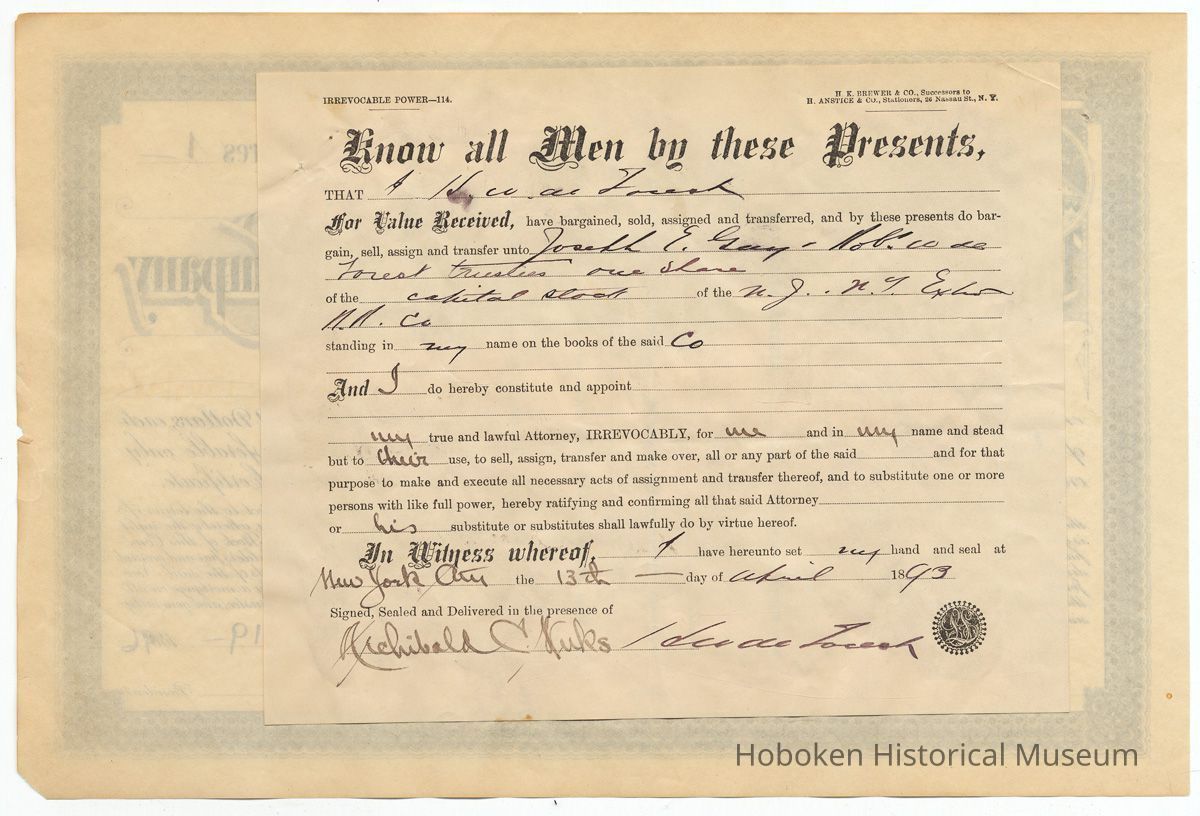 IRREVOCABLE POWER—114.
H. K. BREWER & CO., Successors to
H. ANSTICE & CO., Stationers, 26 Nassau St., N. Y.
Know all Men by these Presents,
THAT I H. W. de Forest
For Value Received, have bargained, sold, assigned and transferred, and by these presents do bar-
gain, sell, assign and transfer unto Joseph E. Gay & Robt W de
Forest trustees one share
of the capital stock of the N. J. & N. Y. Extn
R. R. Co
standing in my name on the books of the said Co
And I do hereby constitute and appoint
my true and lawful Attorney, IRREVOCABLY, for me and in my name and stead
but to their use, to sell, assign, transfer and make over, all or any part of the said and for that
purpose to make and execute all necessary acts of assignment and transfer thereof, and to substitute one or more
persons with like full power, hereby ratifying and confirming all that said Attorney
or his substitute or substitutes shall lawfully do by virtue hereof.
In Witness whereof, I have hereunto set my hand and seal at
New York City the 13th day of April 1893
Signed, Sealed and Delivered in the presence of
Archibald C. H W de Forest
Hoboken Historical Museum